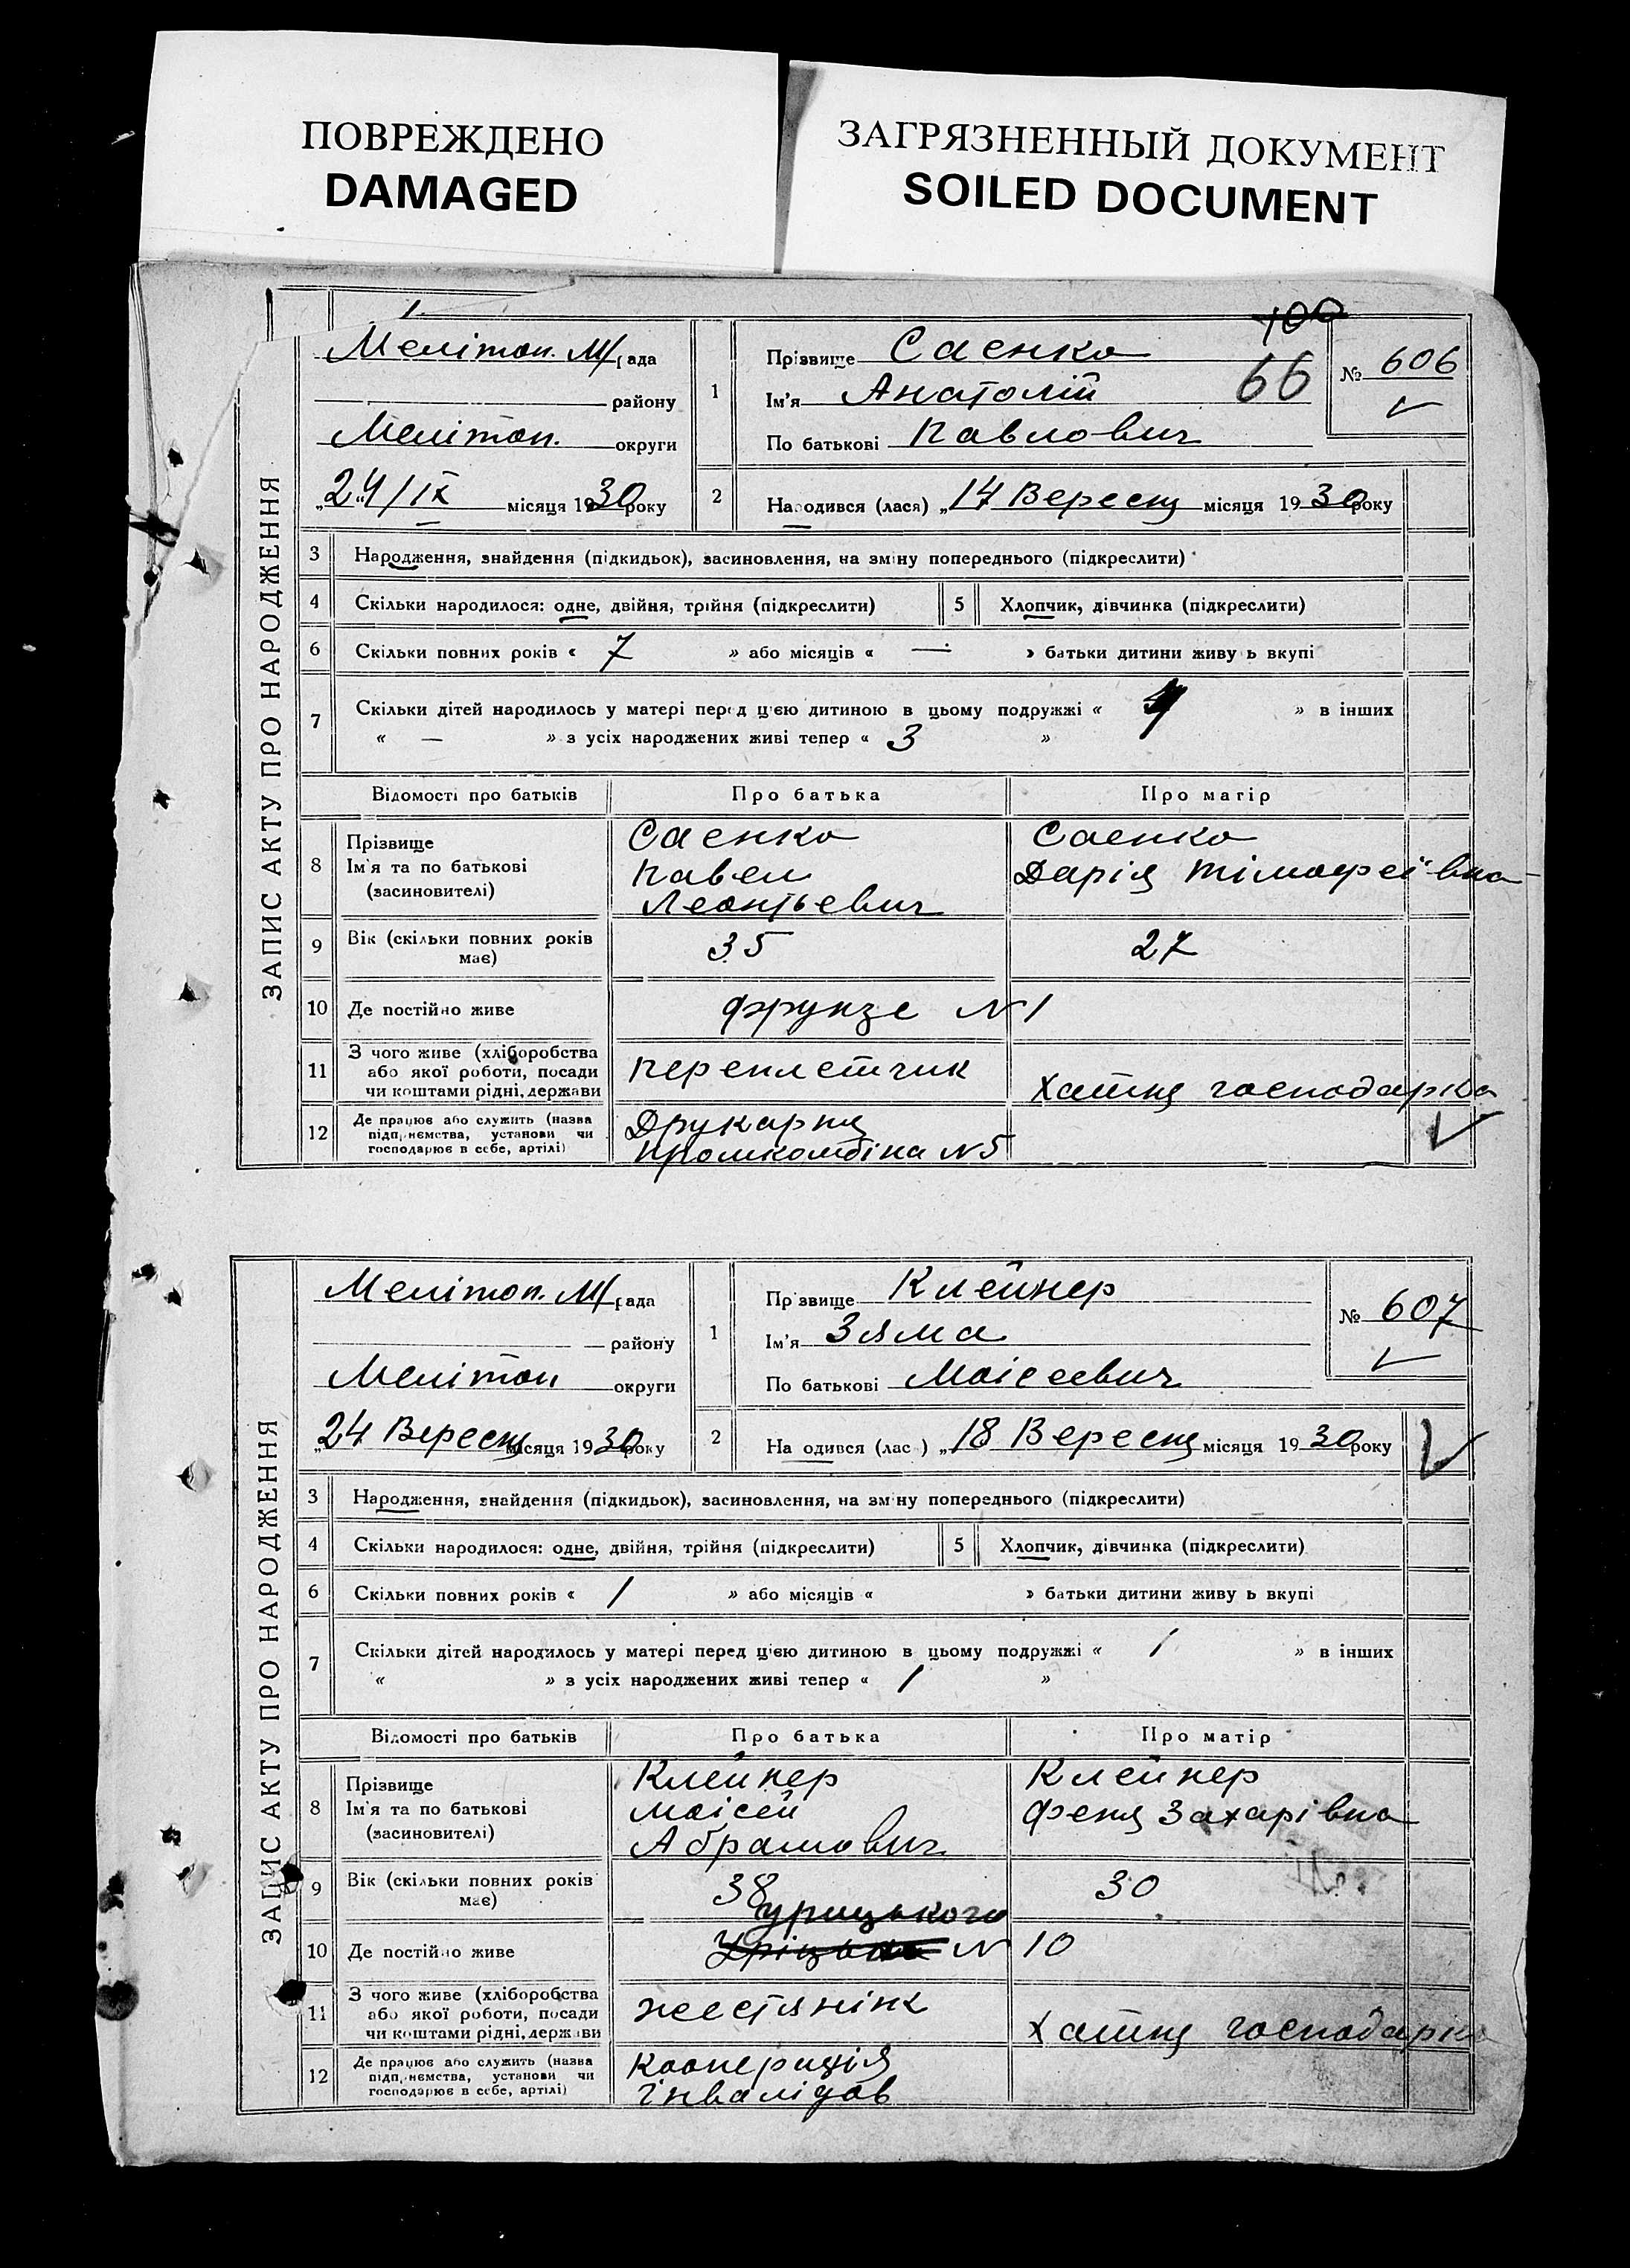 ПОВРЕЖДЕНО
DAMAGED
ЗАГРЯЗНЕННЫЙ ДОКУМЕНТ
SOILED DOCUMENT
ЗАПИС АКТУ ПРО НАРОДЖЕННЯ
Мелітоп. М/рада
району
Мелітоп. округи
„24/IX місяця 1930 року
100
1 Прізвище Саенко
66
Ім'я Анатолій
По батькові Павлович
№ 606
2 Народився (лася) „14 Вересня місяця 1930 року
3 Народження, знайдення (підкидьок), засиновлення, на зміну попереднього (підкреслити)
4 Скільки народилося: одне, двійня, трійня (підкреслити) 5 Хлопчик, дівчинка (підкреслити)
6 Скільки повних років « 7 » або місяців « — » батьки дитини живу ь вкупі
7 Скільки дітей народилось у матері перед цією дитиною в цьому подружжі « 4 » в інших
« — » з усіх народжених живі тепер « 3 »
Відомості про батьків Про батька Про матір
8 Прізвище Саенко Саенко
Ім'я та по батькові Павел Дарія Тімофеївна
(засиновителі) Леонтьевич
9 Вік (скільки повних років має) 35 27
10 Де постійно живе Фрунзе N 1
11 З чого живе (хліборобства або якої роботи, посади чи коштами рідні, держави переплетчик Хатня господарка
12 Де працює або служить (назва підприємства, установи чи господарює в себе, артілі) Друкарня
Промкомбіна N 5
ЗАПИС АКТУ ПРО НАРОДЖЕННЯ
Мелітоп. М/рада
району
Мелітоп округи
„24 Вересня місяця 1930 року
1 Пр звище Клейнер
Ім'я Зяма
По батькові Моісеевич
№ 607
2 На одився (лас ) „18 Вересня місяця 1930 року
3 Народження, знайдення (підкидьок), засиновлення, на зм ну попереднього (підкреслити)
4 Скільки народилося: одне, двійня, трійня (підкреслити) 5 Хлопчик, дівчинка (підкреслити)
6 Скільки повних років « 1 » або місяців « » батьки дитини живу ь вкупі
7 Скільки дітей народилось у матері перед цією дитиною в цьому подружжі « 1 » в інших
« » з усіх народжених живі тепер « 1 »
Відомості про батьків Про батька Про матір
8 Прізвище Клейнер Клейнер
Ім'я та по батькові Моісей Феня Захарівна
(засиновителі) Абрамович
9 Вік (скільки повних років має) 38 30
урицького
10 Де постійно живе N 10
11 З чого живе (хліборобства або якої роботи, посади чи коштами рідні, держави жестянік Хатня господарка
12 Де працює або служить (назва підприємства, установи чи господарює в себе, артілі) Кооперація
Інвалідов